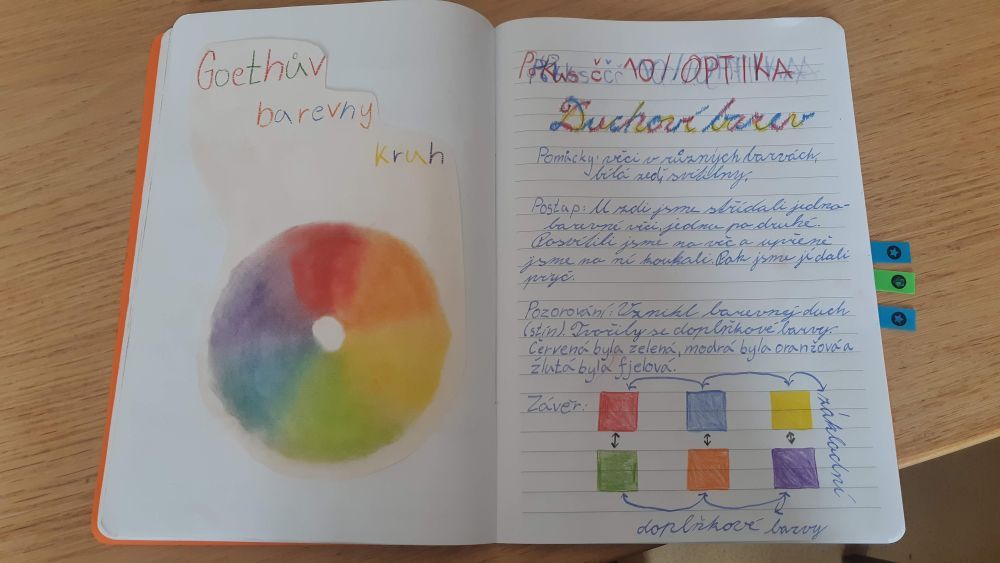 Goethův
barevny
kruh
Pokus č 10 // OPTIKA
Duchové barev
Pomůcky: věci v různých barvách,
bílá zeď, svítilny.
Postup: U zdi jsme střídali jedno-
barevné věci, jednu po druhé.
Posvítili jsme na věc a upřeně
jsme na ní koukali. Pak jsme jí dali
pryč.
Pozorování: Vznikl barevný duch
(stín). Tvořily se doplňkové barvy.
Červená byla zelená, modrá byla oranžová a
žlutá byla fjelová.
Závěr:
základní
doplňkové barvy